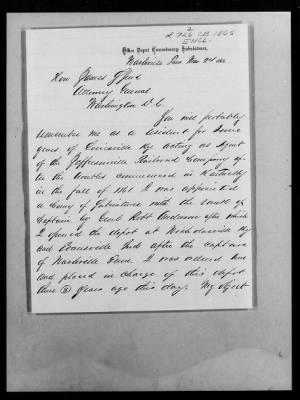 2
L 726 CB 1865
ENCL.
Office Depot Commissary Subsistence,
Nashville Tenn Mar 24 1865
Hon James Speed
Attorney General
Washington D.C.
You will probably
remember me as a resident for some
years of Louisville Ky acting as Agent
of the Jeffersonville Railroad Company af-
ter the troubles commenced in Kentucky
in the fall of 1861 I was appointed
a Comsy of Subsistence with the rank of
Captain by Genl Robt Anderson after which
I opened the depot at Nicholasville Ky
and Evansville Ind after the capture
of Nashville Tenn. I was ordered here
and placed in charge of this depot
three (3) years ago this day. My Dept